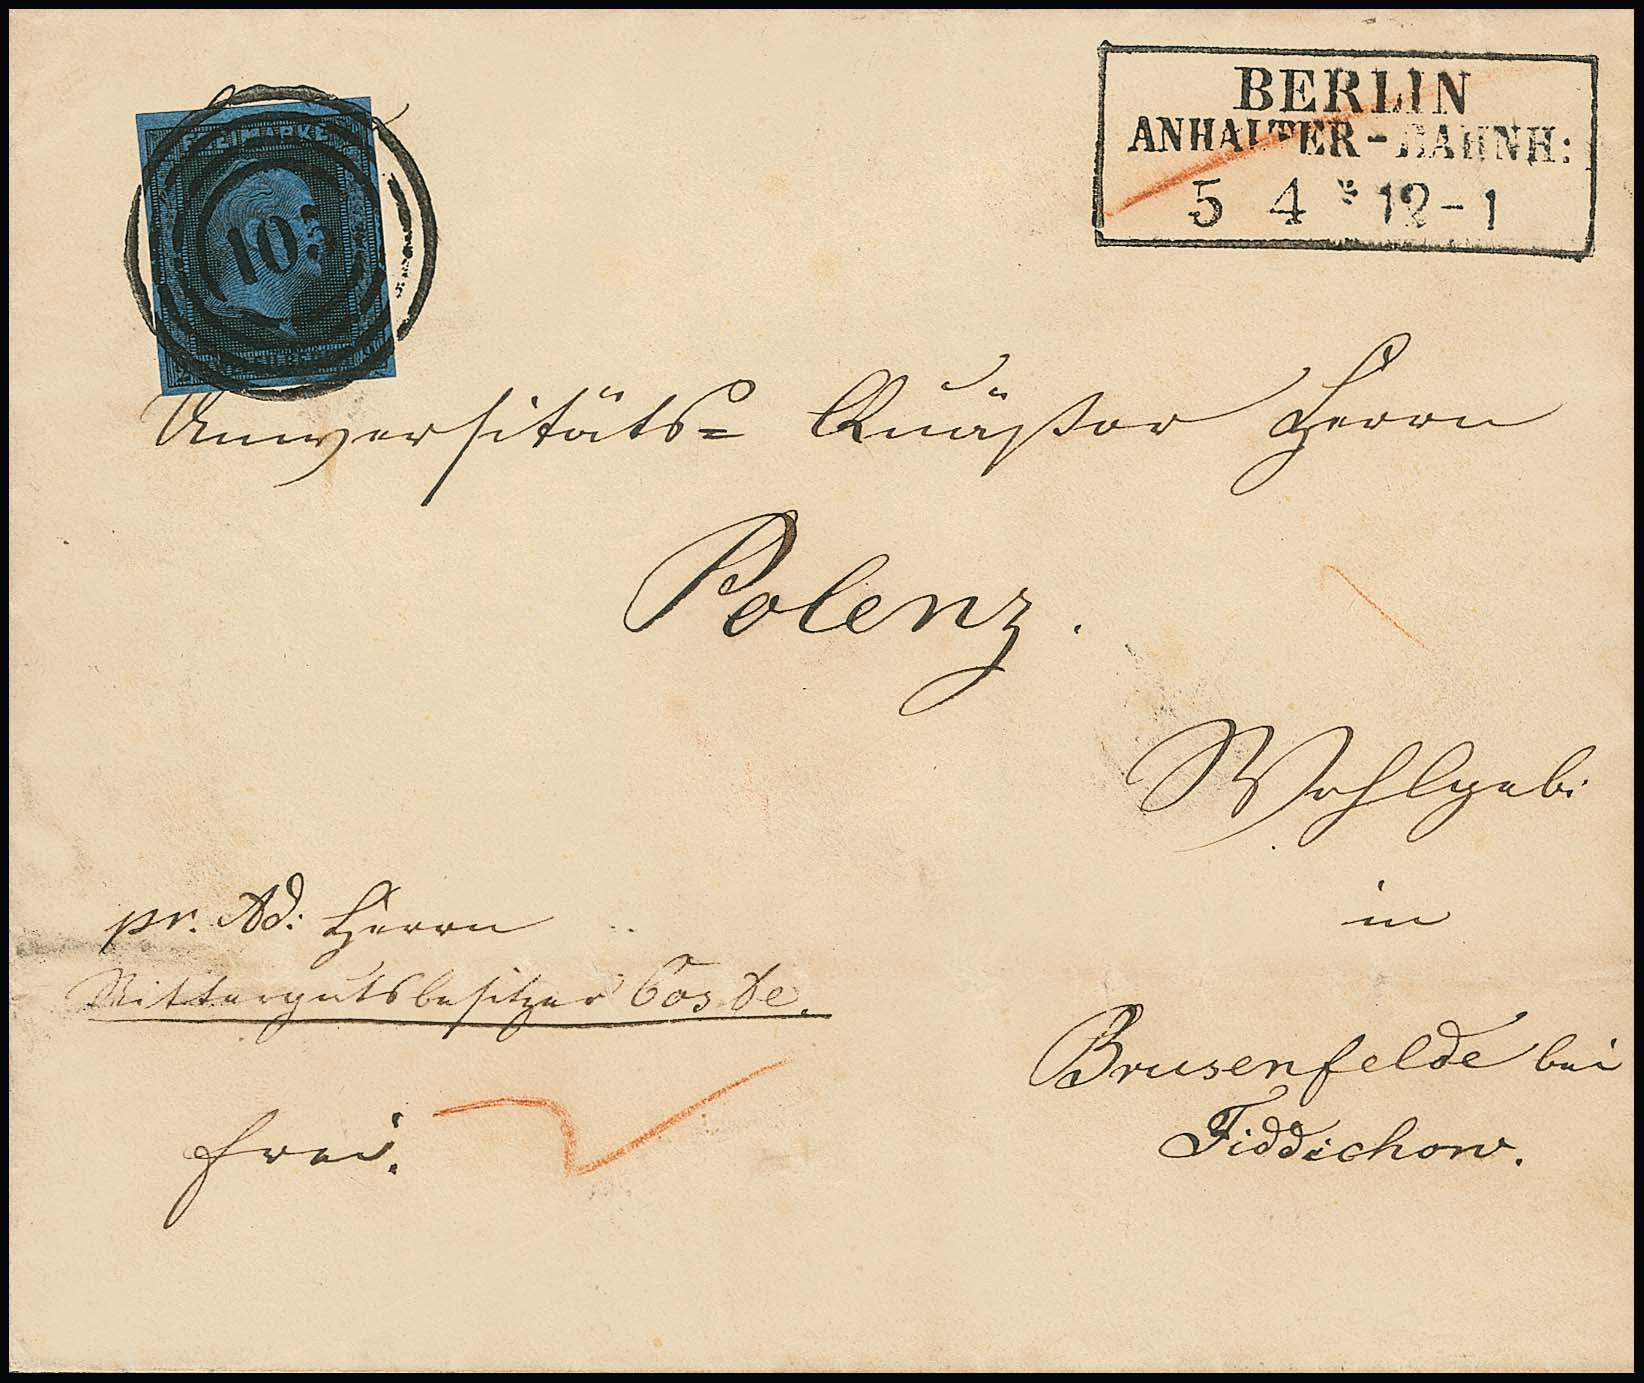 BERLIN
ANHALTER-BAHNH:
5 4 * 12-1
FREIMARKE
103
Universitäts= Quästor Herrn
Polenz.
Wohlgeb:
in
pr. Ad: Herrn
Rittergutsbesitzer Coste.
Brusenfelde bei
Fiddichow.
frei.